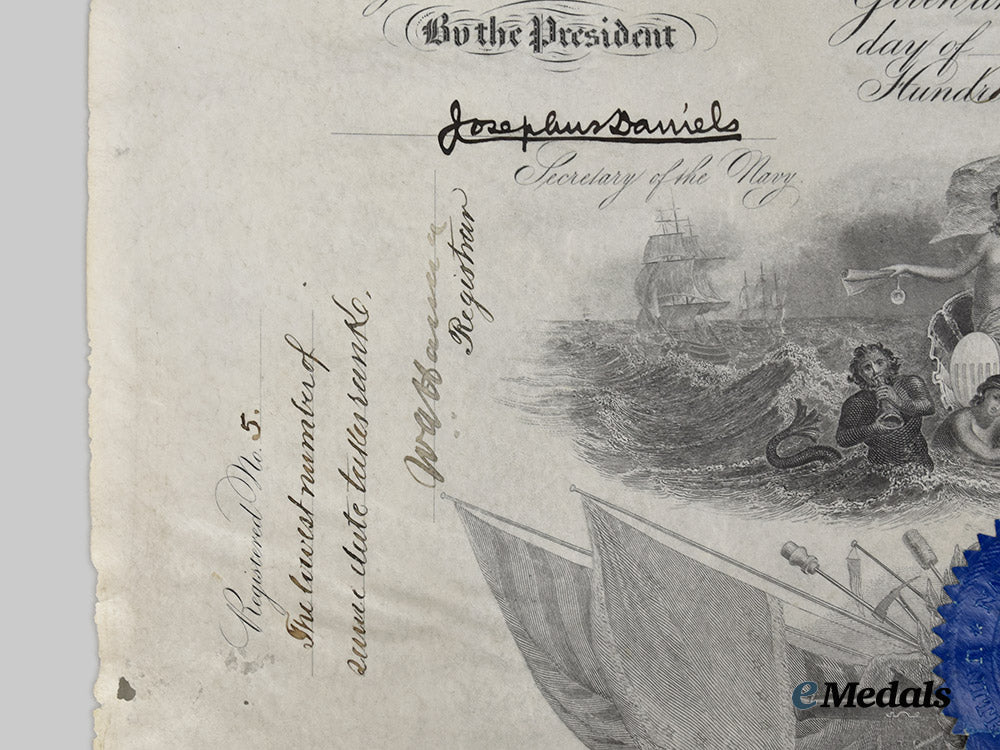 By the President
Given un
day of
Hundre
Josephus Daniels
Secretary of the Navy.
Registered No. 5.
The lowest number of
same date takes rank.
Registrar
eMedals